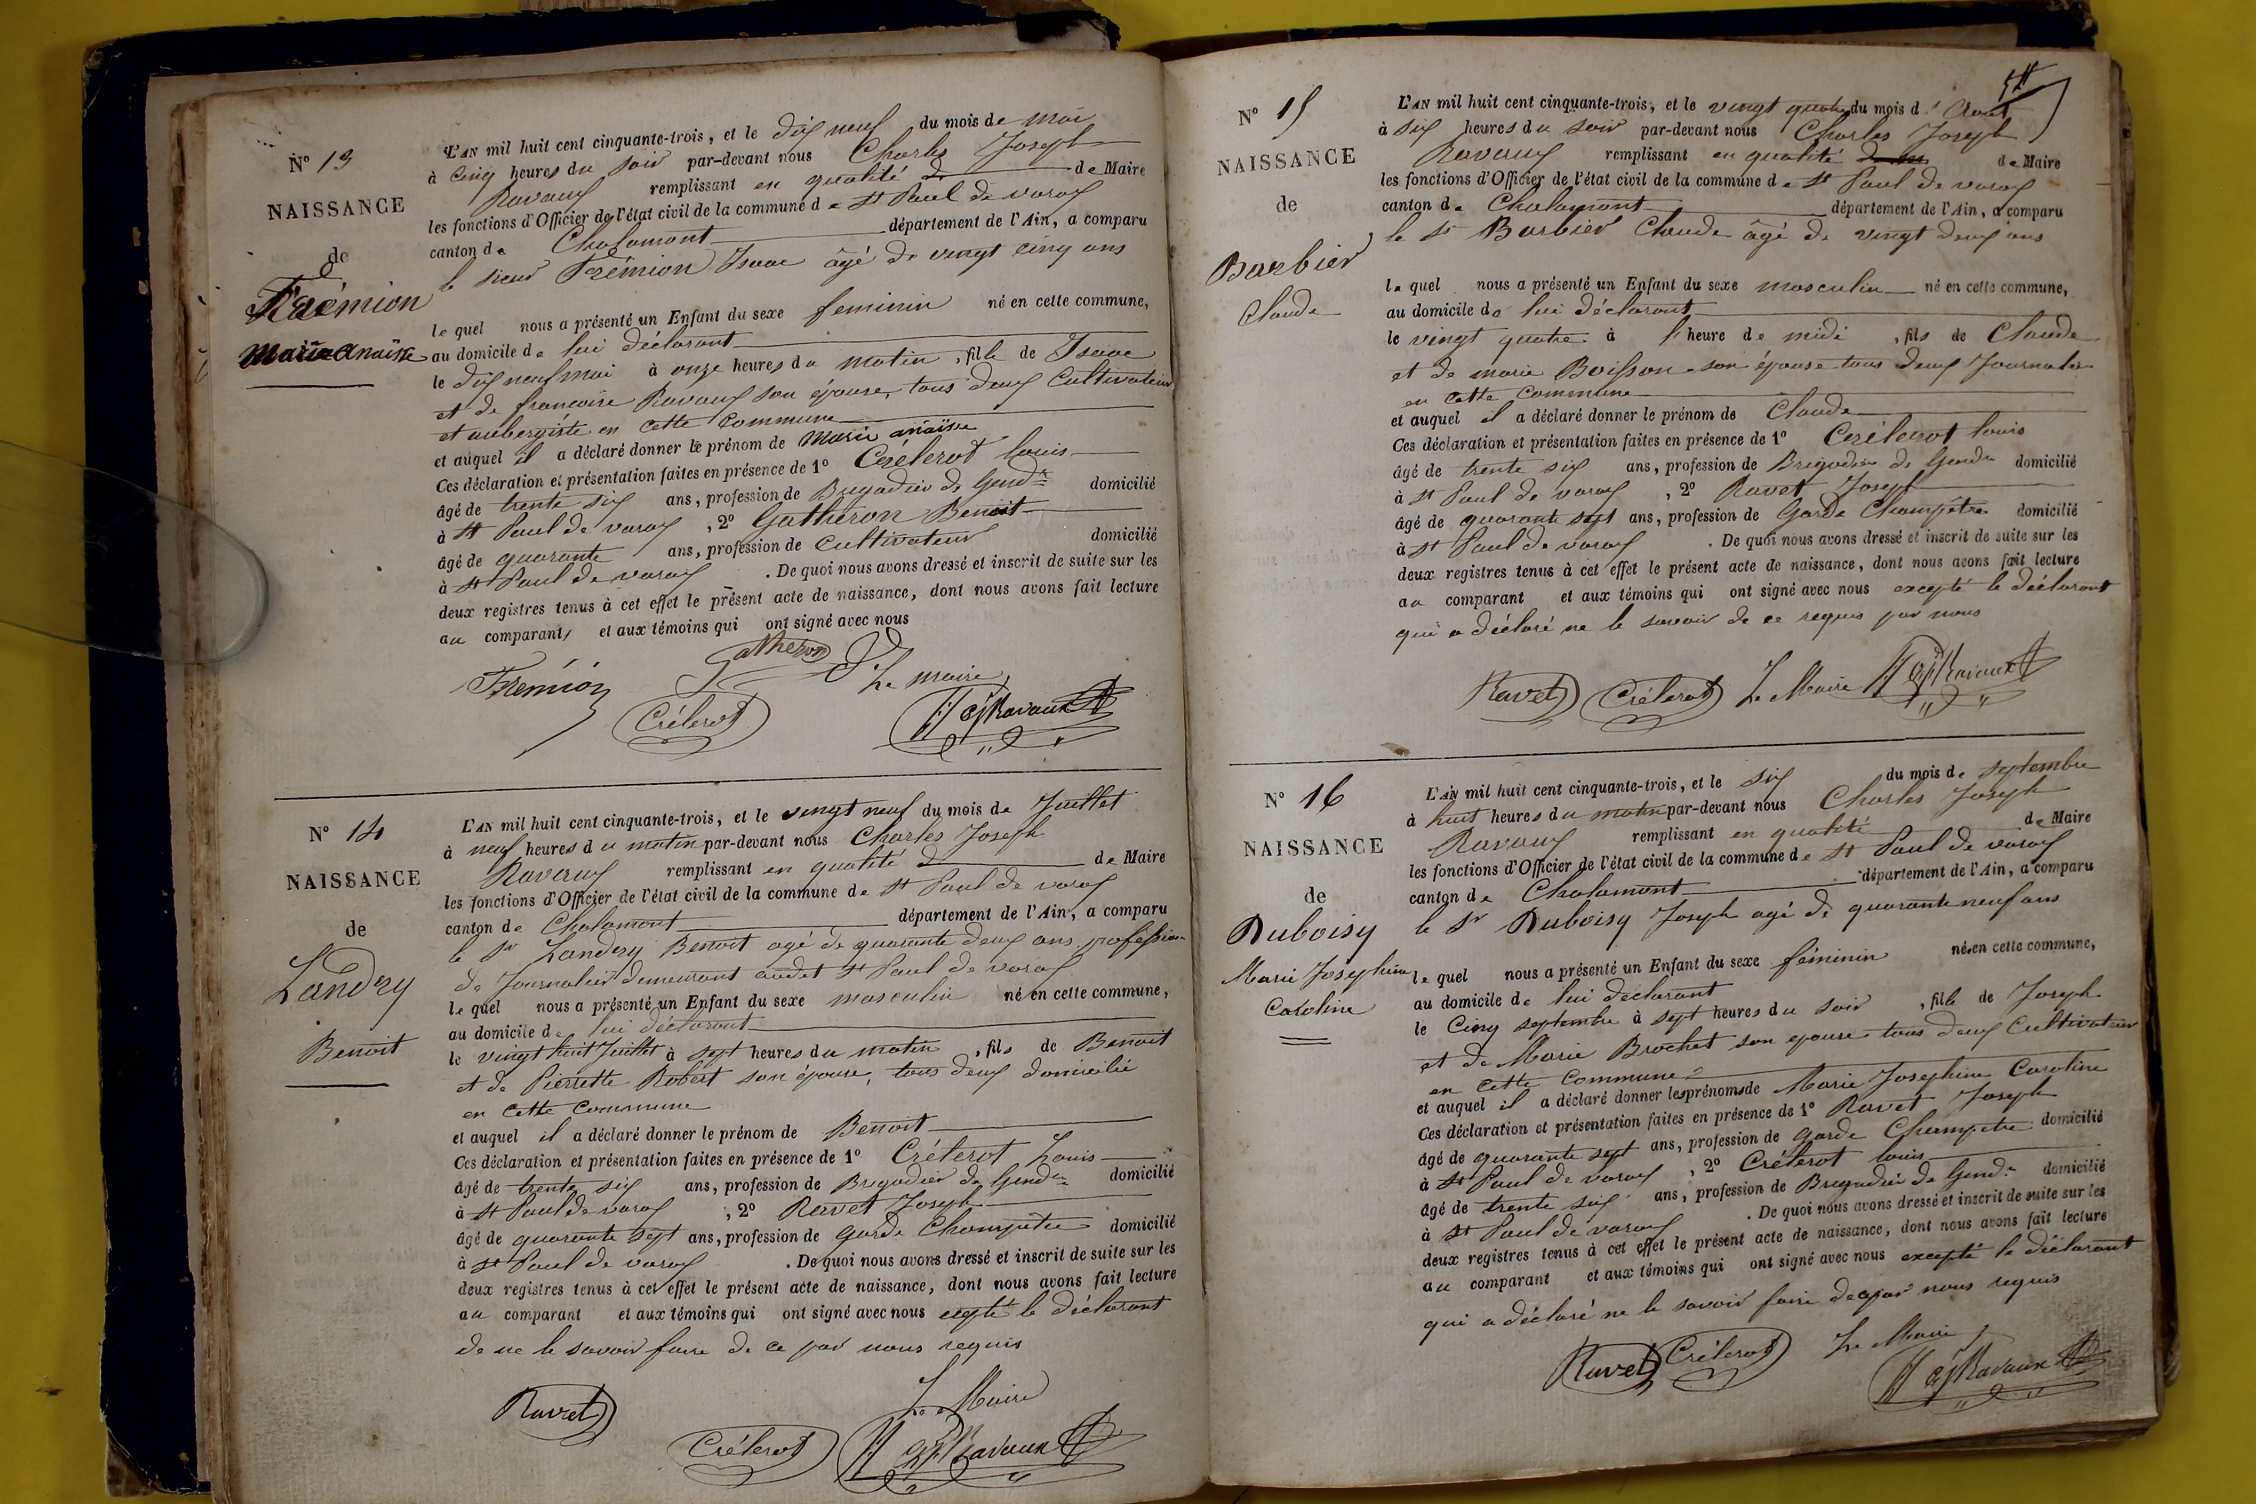 N° 13
NAISSANCE
de
Frémion
Marie Anaïsse
L'AN mil huit cent cinquante-trois, et le dix neuf du mois de mai
à cinq heures du soir par-devant nous Charles Joseph
Ravaux remplissant en qualité de Maire
les fonctions d'Officier de l'état civil de la commune de St Paul de varax
canton de Chalamont département de l'Ain, a comparu
le sieur Frémion Isaac âgé de vingt cinq ans
le quel nous a présenté un Enfant du sexe feminin né en cette commune,
au domicile de lui déclarant
le dix neuf mai à onze heures du matin, fille de Isaac
et de francoise Ravaux son épouse, tous deux Cultivateur
et aubergiste en cette commune
et auquel il a déclaré donner le prénom de Marie anaïsse
Ces déclaration et présentation faites en présence de 1° Créterot louis
âgé de trente six ans, profession de Brigadier de Gendie domicilié
à St Paul de varax, 2° Gatheron Benoit
âgé de quarante ans, profession de Cultivateur domicilié
à St Paul de varax. De quoi nous avons dressé et inscrit de suite sur les
deux registres tenus à cet effet le présent acte de naissance, dont nous avons fait lecture
au comparant, et aux témoins qui ont signé avec nous
Gatheron
Frémion
Le maire
Créterot
Ravaux
N° 14
NAISSANCE
de
Landry
Benoit
L'AN mil huit cent cinquante-trois, et le vingt neuf du mois de Juillet
à neuf heures du matin par-devant nous Charles Joseph
Ravaux remplissant en qualité de Maire
les fonctions d'Officier de l'état civil de la commune de St Paul de varax
canton de Chalamont département de l'Ain, a comparu
le Sr Landry Benoit agé de quarante deux ans profession
de Journalier demeurant audit St Paul de varax
le quel nous a présenté un Enfant du sexe masculin né en cette commune,
au domicile de lui déclarant
le vingt huit Juillet à sept heures du matin, fils de Benoit
et de Pierrette Robert son épouse, tous deux domicilié
en cette commune
et auquel il a déclaré donner le prénom de Benoit
Ces déclaration et présentation faites en présence de 1° Créterot Louis
âgé de trente six ans, profession de Brigadier de Gendie domicilié
à St Paul de varax, 2° Ravet Joseph
âgé de quarante sept ans, profession de garde Champêtre domicilié
à St Paul de varax. De quoi nous avons dressé et inscrit de suite sur les
deux registres tenus à cet effet le présent acte de naissance, dont nous avons fait lecture
au comparant et aux témoins qui ont signé avec nous le déclarant
de ne le savoir faire de ce par nous requis
Le Maire
Ravet
Créterot
Ravaux
N° 15
NAISSANCE
de
Barbier
Claude
L'AN mil huit cent cinquante-trois, et le vingt quatre du mois d'Aout
à six heures du soir par-devant nous Charles Joseph
Ravaux remplissant en qualité de Maire
les fonctions d'Officier de l'état civil de la commune de St Paul de varax
canton de Chalamont département de l'Ain, a comparu
le Sr Barbier Claude âgé de vingt deux ans
le quel nous a présenté un Enfant du sexe masculin né en cette commune,
au domicile de lui déclarant
le vingt quatre à l'heure de midi, fils de Claude
et de marie Boisson son épouse tous deux Journalier
en cette commune
et auquel il a déclaré donner le prénom de Claude
Ces déclaration et présentation faites en présence de 1° Créterot louis
âgé de trente six ans, profession de Brigadier de Gendie domicilié
à St Paul de varax, 2° Ravet Joseph
âgé de quarante sept ans, profession de Garde Champêtre domicilié
à St Paul de varax. De quoi nous avons dressé et inscrit de suite sur les
deux registres tenus à cet effet le présent acte de naissance, dont nous avons fait lecture
au comparant et aux témoins qui ont signé avec nous excepté le déclarant
qui a déclaré ne le savoir de ce requis par nous
Ravet Créterot Le Maire Ravaux
N° 16
NAISSANCE
de
Duboisy
Marie Josephine
Caroline
L'AN mil huit cent cinquante-trois, et le six du mois de septembre
à huit heures du matin par-devant nous Charles Joseph
Ravaux remplissant en qualité de Maire
les fonctions d'Officier de l'état civil de la commune de St Paul de varax
canton de Chalamont département de l'Ain, a comparu
le Sr Duboisy Joseph agé de quarante neuf ans
le quel nous a présenté un Enfant du sexe féminin née en cette commune,
au domicile de lui déclarant
le Cinq septembre à sept heures du soir, fille de Joseph
et de Marie Brochet son epouse tous deux Cultivateur
en cette commune
et auquel il a déclaré donner les prénoms de Marie Josephine Caroline
Ces déclaration et présentation faites en présence de 1° Ravet Joseph
âgé de quarante sept ans, profession de garde Champetre domicilié
à St Paul de varax, 2° Créterot louis
âgé de trente six ans, profession de Brigadier de Gendie domicilié
à St Paul de varax. De quoi nous avons dressé et inscrit de suite sur les
deux registres tenus à cet effet le présent acte de naissance, dont nous avons fait lecture
au comparant et aux témoins qui ont signé avec nous excepté le déclarant
qui a déclaré ne le savoir faire de ce par nous requis
Ravet Créterot Le Maire
Ravaux